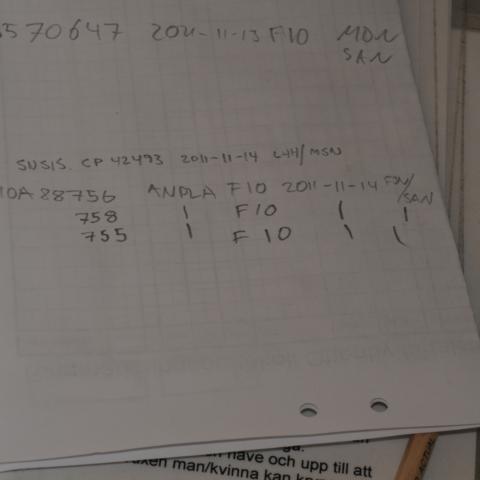 570647 2011-11-13 F10 MON
SAN
SUSIS. CP 42493 2011-11-14 L44/MSN
10A 88756 ANPLA F10 2011-11-14 FDN/
/SAN
758 | F10 | |
755 | F10 | |
nave och upp till att
man/kvinna kan